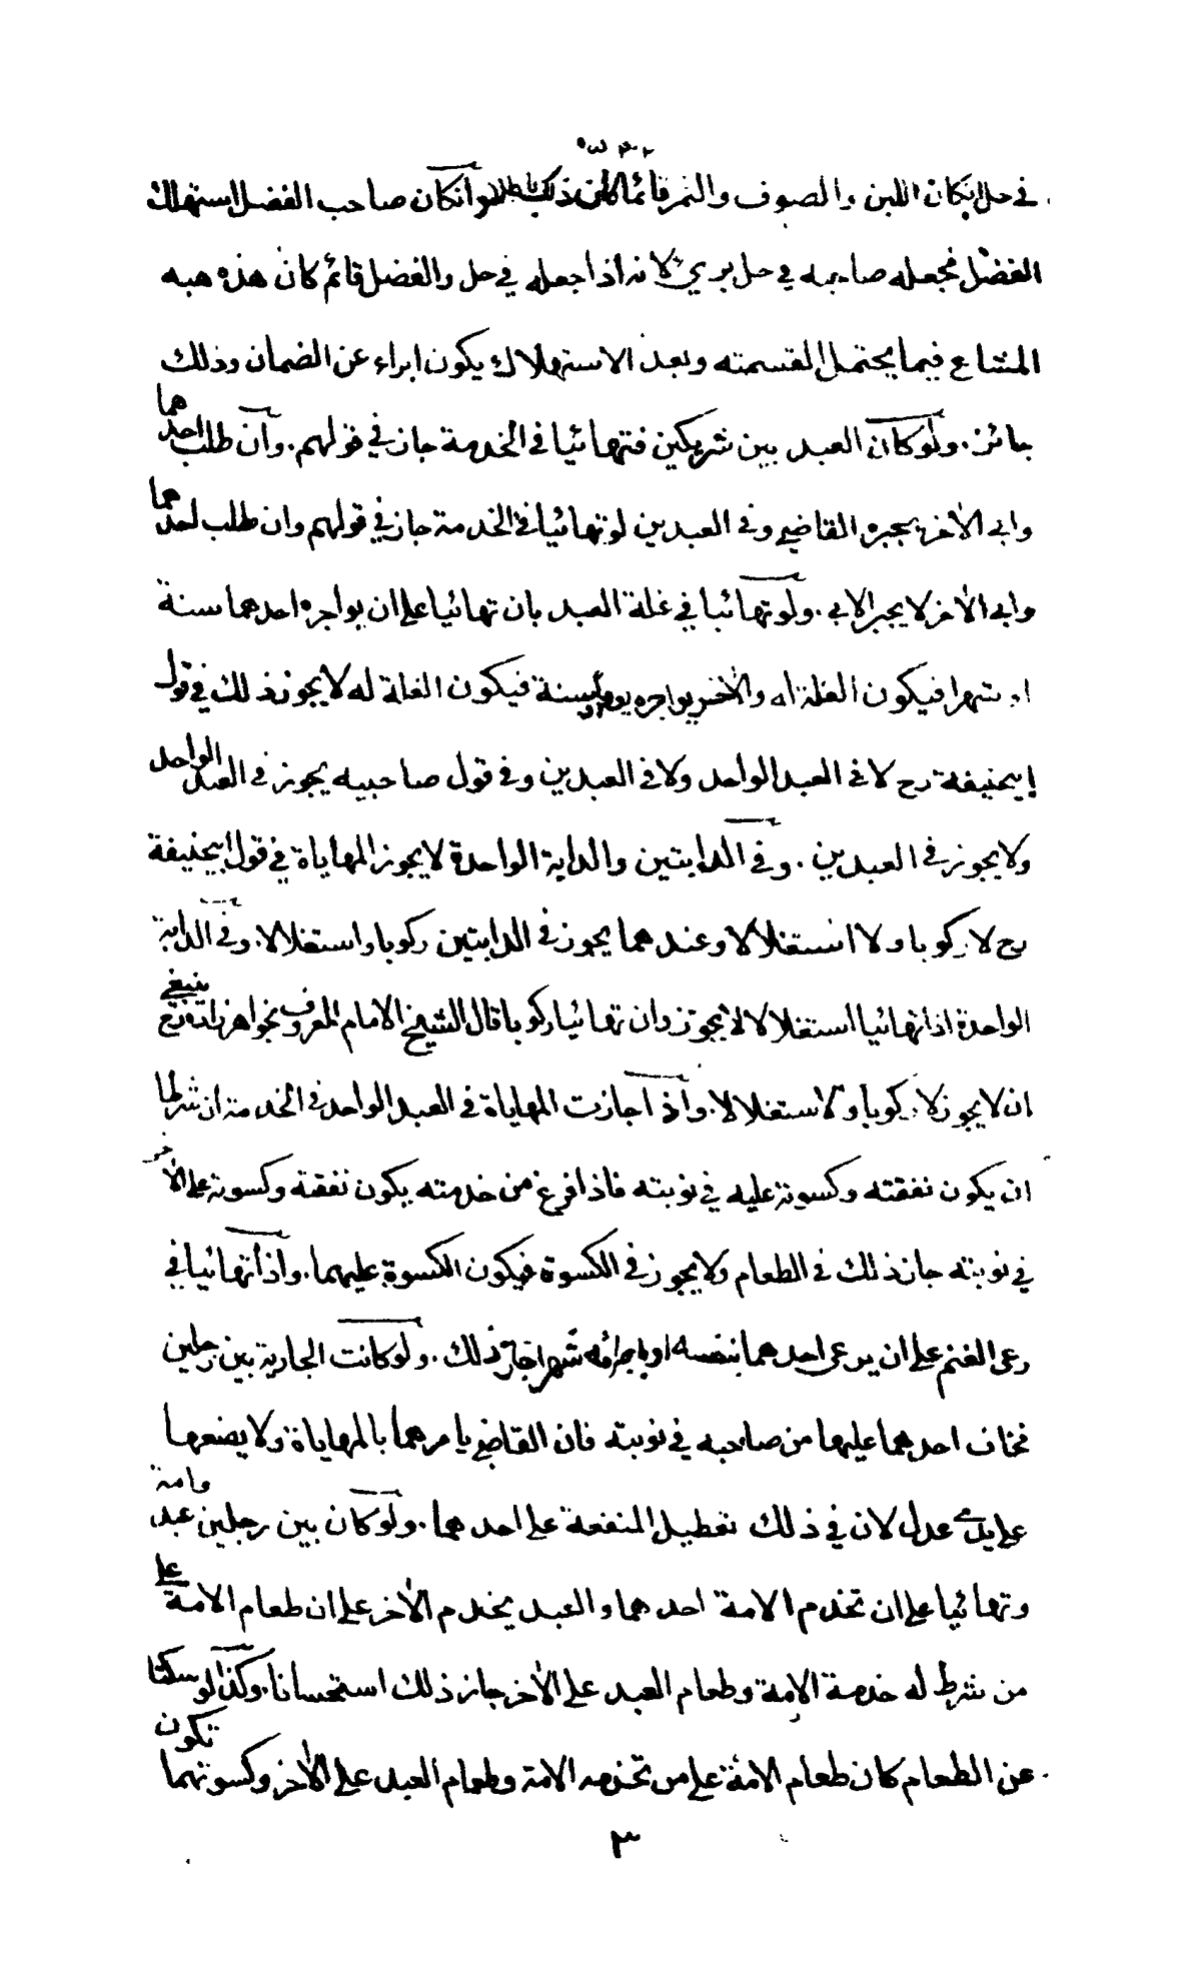 في حل ان كان اللبن والصوف والثمر قائما كان ذلك باطلا وان كان صاحب الفضل استهلك
الفضل فجعله صاحبه في حل بري لانه اذا جعله في حل والفضل قائم كان هذه هبه
المشاع فيما يحتمل القسمته وبعد الاستهلاك يكون ابراء عن الضمان وذلك
جائز. ولو كان العبد بين شريكين فتهائيا في الخدمة جاز في قولهم. وان طلب احدهما
وابى الاخر يجبره القاضي وفي العبدين لو تهائيا في الخدمة جاز في قولهم وان طلب احدهما
وابى الاخر لا يجبر الابي. ولو تهائيا في غلة العبد بان تهائيا على ان يواجره احدهما سنة
او شهرا فيكون الغلة له والاخر يواجره سنة فيكون الغلة له لا يجوز ذلك في قول
ابيحنيفة رح لا في العبد الواحد ولا في العبدين وفي قول صاحبيه يجوز في العبد الواحد
ولا يجوز في العبدين. وفي الدابتين والدابة الواحدة لا يجوز المهاياة في قول ابيحنيفة
رح لا ركوبا ولا استغلالا وعندهما يجوز في الدابتين ركوبا واستغلالا. وفي الدابة
الواحدة اذا تهائيا استغلالا لا يجوز وان تهائيا ركوبا قال الشيخ الامام المعروف بخواهر زاده رح ينبغي
ان لا يجوز لا ركوبا ولا استغلالا. واذا جازت المهاياة في العبد الواحد في الخدمة ان شرطا
ان يكون نفقته وكسوته عليه في نوبته فاذا فرغ من خدمته يكون نفقة وكسوته على الاخر
في نوبته جاز ذلك في الطعام ولا يجوز في الكسوة فيكون الكسوة عليهما. واذا تهائيا في
رعى الغنم على ان يرعى احدهما بنفسه او باجرائه شهرا جاز ذلك. ولو كانت الجارية بين رجلين
فخاف احدهما عليها من صاحبه في نوبته فان القاضي يامرهما بالمهاياة ولا يضعها
على يدي عدل لان في ذلك تعطيل المنفعة على احدهما. ولو كان بين رجلين عبد وامة
وتهائيا على ان تخدم الامة احدهما والعبد يخدم الاخر على ان طعام الامة على
من شرط له خدمة الامة وطعام العبد على الاخر جاز ذلك استحسانا. وكذا لو سكتا
عن الطعام كان طعام الامة على من تخدمه الامة وطعام العبد على الاخر وكسوتهما تكون
٣